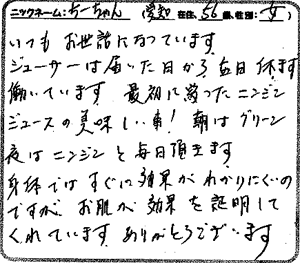 ニックネーム:ちーちゃん (愛知 在住、56歳、性別:女)
いつも お世話になっています
ジューサーは届いた日から毎日休まず
働いています 最初に搾ったニンジン
ジュースの美味しい事! 朝はグリーン
夜はニンジンと毎日頂きます
身体ではすぐに効果がわかりにくいの
ですが お肌が効果を証明して
くれています ありがとうございます